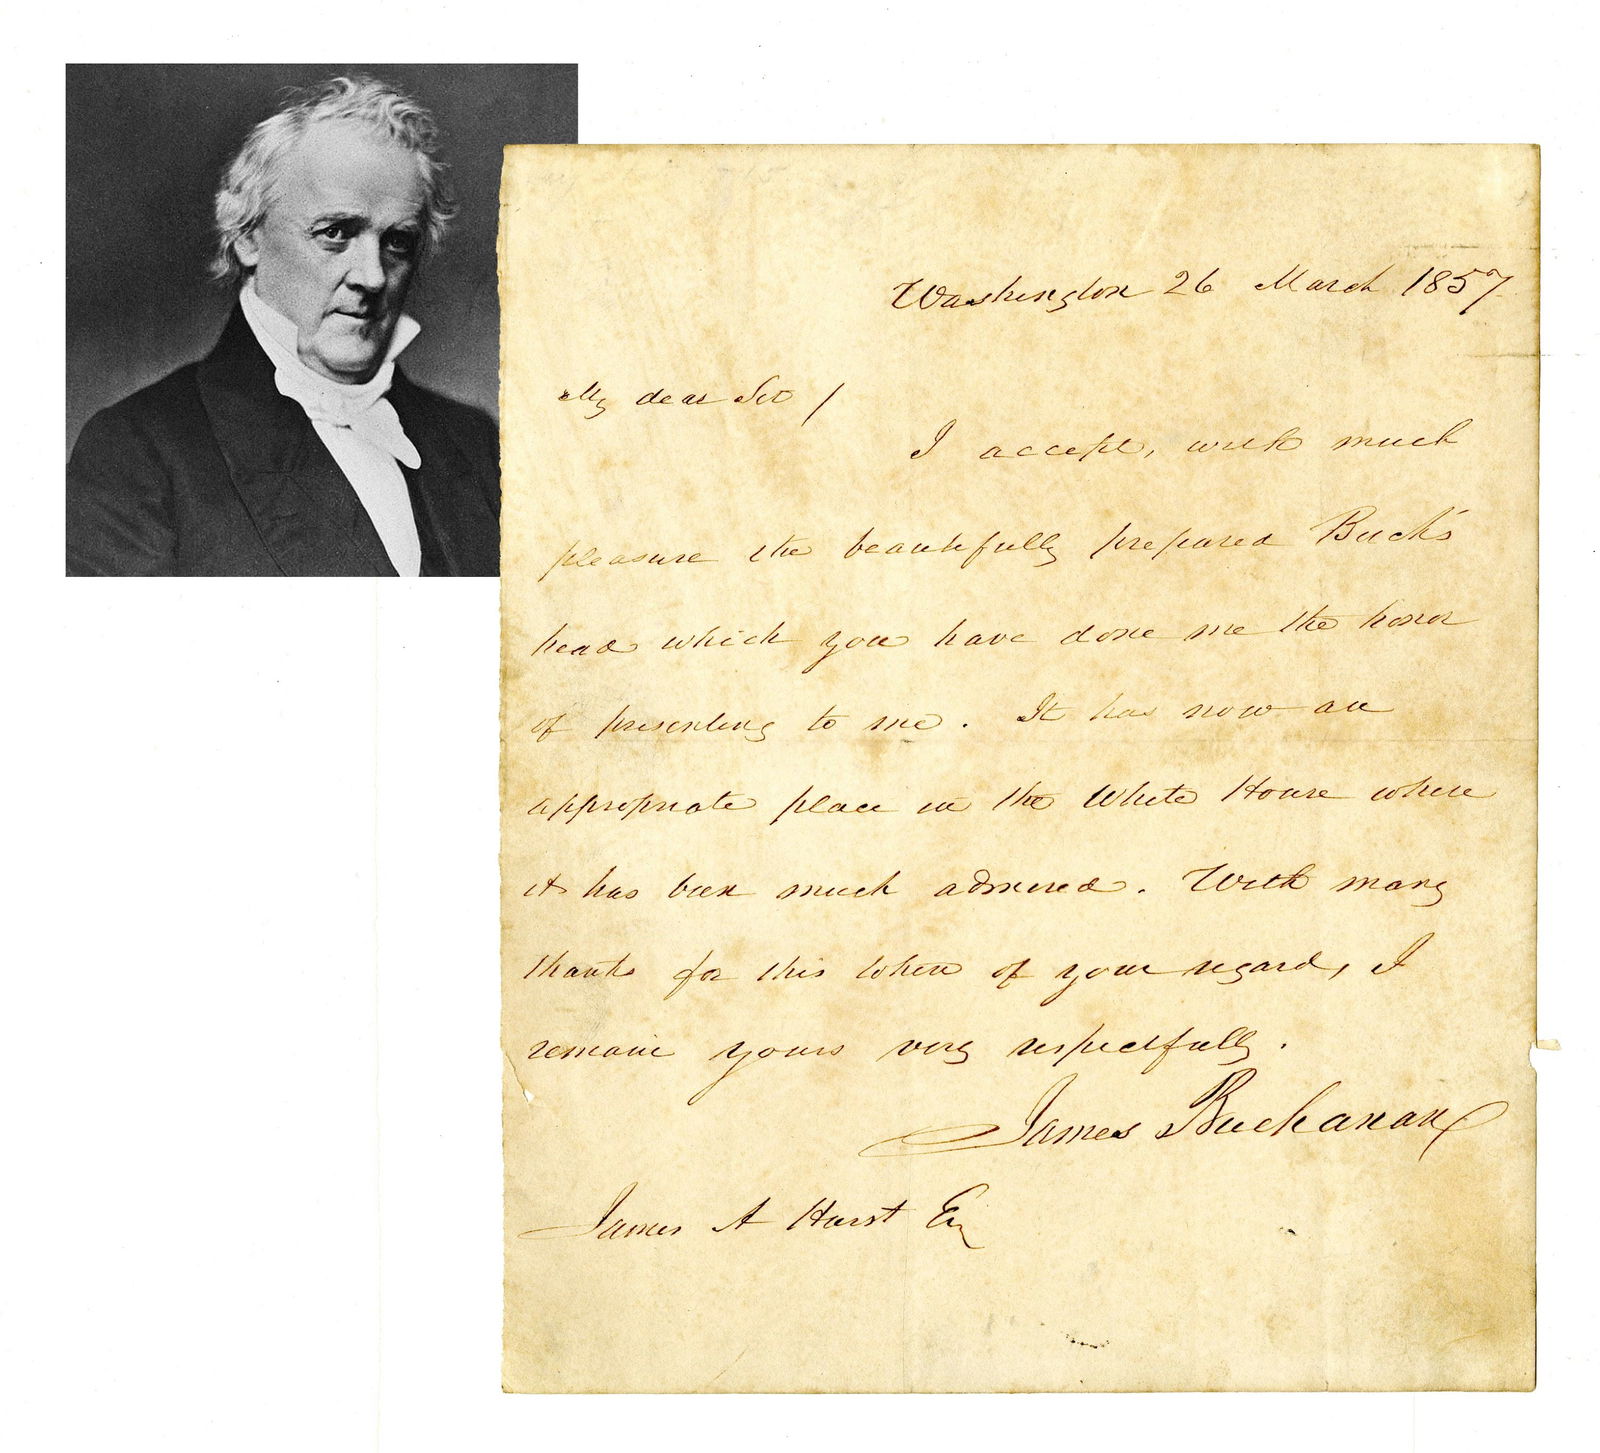 Washington 26 March 1857
My dear Sir /
I accept, with much
pleasure the beautifully prepared Buck's
head which you have done me the honor
of presenting to me. It has now an
appropriate place in the White House where
it has been much admired. With many
thanks for this token of your regard, I
remain yours very respectfully.
James Buchanan
James A Hurst Esq